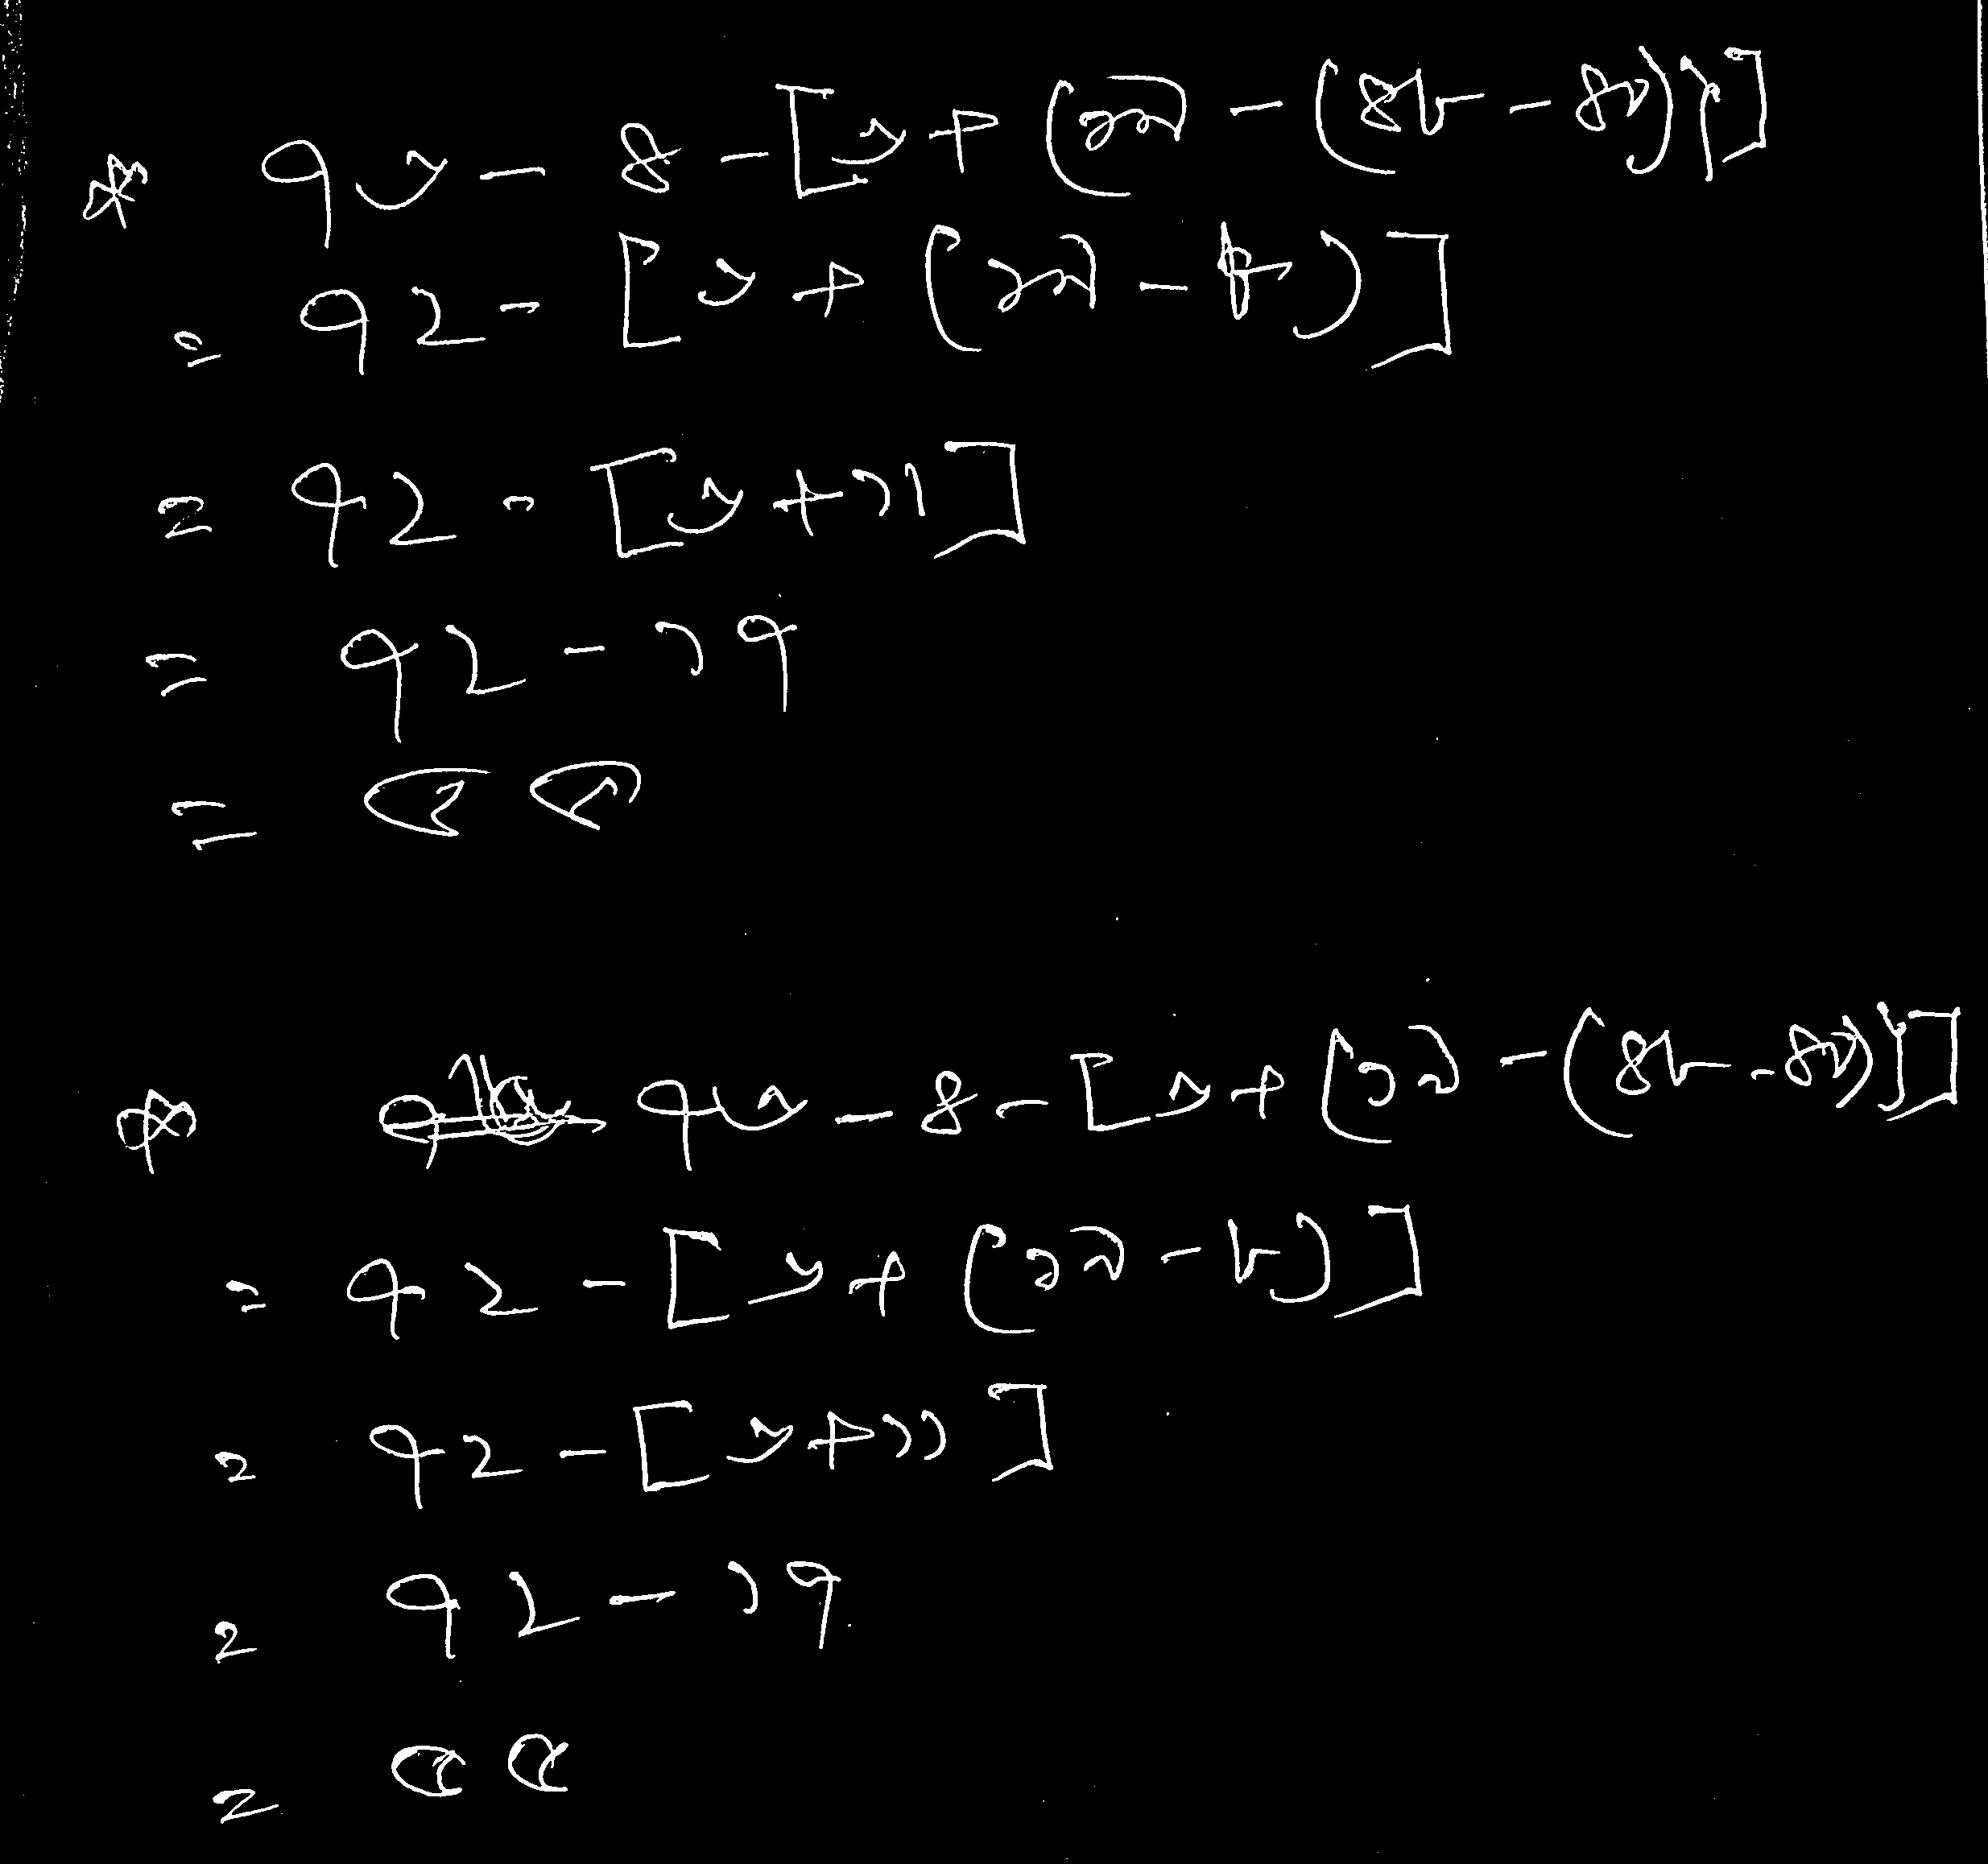 * ৭৬ - ৪ - [৬ + {১৯ - (৪৮ - ৪০)}]
= ৭২ - [৬ + {১৯ - ৮}]
= ৭২ - [৬ + ১১]
= ৭২ - ১৭
= ৫৫
* ৭৬ - ৪ - [৬ + {১৯ - (৪৮ - ৪০)}]
= ৭২ - [৬ + {১৯ - ৮}]
= ৭২ - [৬ + ১১]
= ৭২ - ১৭
= ৫৫